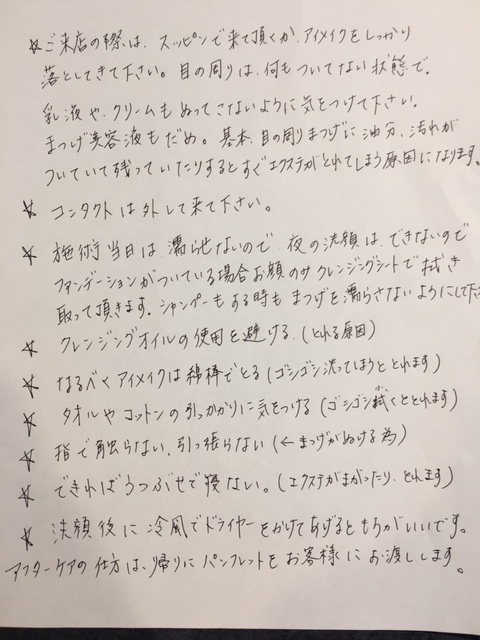 ☆ご来店の際は、スッピンで来て頂くか、アイメイクをしっかり
落としてきて下さい。目の周りは、何もついてない状態で。
乳液や、クリームもぬってこないように気をつけて下さい。
まつげ美容液もだめ。基本、目の周りまつげに油分、汚れが
ついていて残っていたりするとすぐエクステがとれてしまう原因になります。
☆ コンタクトは外して来て下さい。
☆ 施術当日は、濡らせないので、夜の洗顔は、できないので
ファンデーションがついている場合お顔のみクレンジングシートで拭き
取って頂きます。シャンプーもする時も、まつげを濡らさないようにして下さ
☆ クレンジングオイルの使用を避ける。(とれる原因)
☆ なるべくアイメイクは綿棒でとる(ゴシゴシ洗ってしまうととれます)
☆ タオルやコットンの引っかかりに気をつける(ゴシゴシ拭くととれます)
☆ 指で触らない、引っ張らない(←まつげがぬける為)
☆ できればうつぶせで寝ない。(エクステがまがったり、とれます)
☆ 洗顔後に冷風でドライヤーをかけてあげるともちがいいです。
アフターケアの仕方は、帰りにパンフレットをお客様にお渡しします。